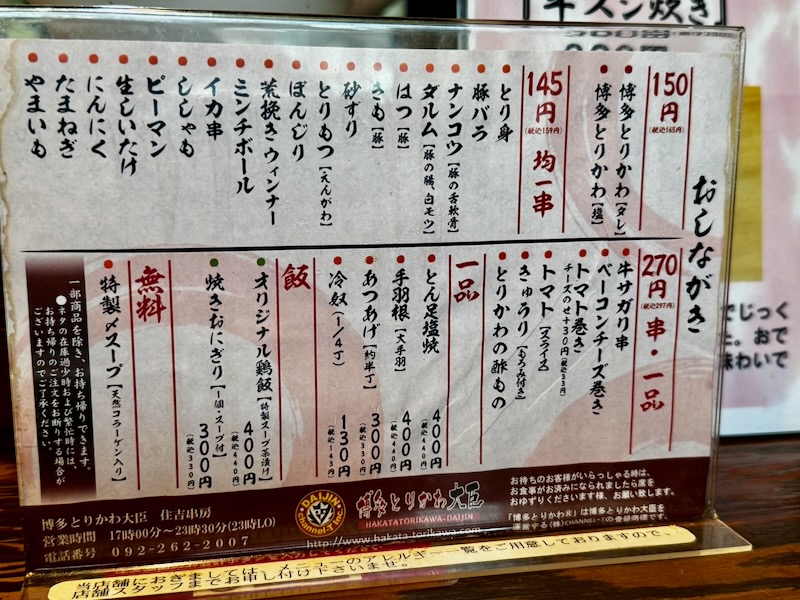 おしながき
150円
(税込165円)
博多とりかわ【タレ】
博多とりかわ【塩】
145円 均一串
(税込159円)
とり身
豚バラ
ナンコツ【豚の舌軟骨】
ダルム【豚の腸、白モツ】
はつ【豚】
きも【豚】
砂ずり
とりもつ【えんがわ】
ぼんじり
荒挽きウィンナー
ミンチボール
イカ串
ししゃも
ピーマン
生しいたけ
にんにく
たまねぎ
やまいも
270円 串・一品
(税込297円)
牛サガリ串
ベーコンチーズ巻き
トマト巻き
チーズのせ+30円(税込33円)
トマト【スライス】
きゅうり【もろみ付き】
とりかわの酢もの
一品
とん足塩焼 400円
(税込440円)
手羽根【大手羽】 400円
(税込440円)
あつあげ【約半丁】 300円
(税込330円)
冷奴(1/4丁) 130円
(税込143円)
飯
オリジナル鶏飯【特製スープ茶漬け】 400円
(税込440円)
焼きおにぎり【1個・スープ付】 300円
(税込330円)
無料
特製〆スープ【天然コラーゲン入り】
一部商品を除き、お持ち帰りできます。
●ネタの在庫過少時および繁忙時には、
お持ち帰りのご注文をお断りする場合が
ございますのでご了承ください。
博多とりかわ大臣 住吉串房
営業時間 17時00分〜23時30分(23時LO)
電話番号 092-262-2007
DAIJIN
Channel-T Inc.
博多とりかわ大臣
HAKATATORIKAWA-DAIJIN
http://www.hakata-torikawa.com
お待ちのお客様がいらっしゃる時は、
お食事がお済みになられましたら席を
おゆずりくださいます様、お願い致します。
「博多とりかわ®」は博多とりかわ大臣を
運営する(株)CHANNEL-Tの登録商標です。
当店舗におきましては、メニューのアレルギー一覧をご用意しておりますので、
店舗スタッフまでお申し付け下さいませ。
でじっく
と。おで
味わいで